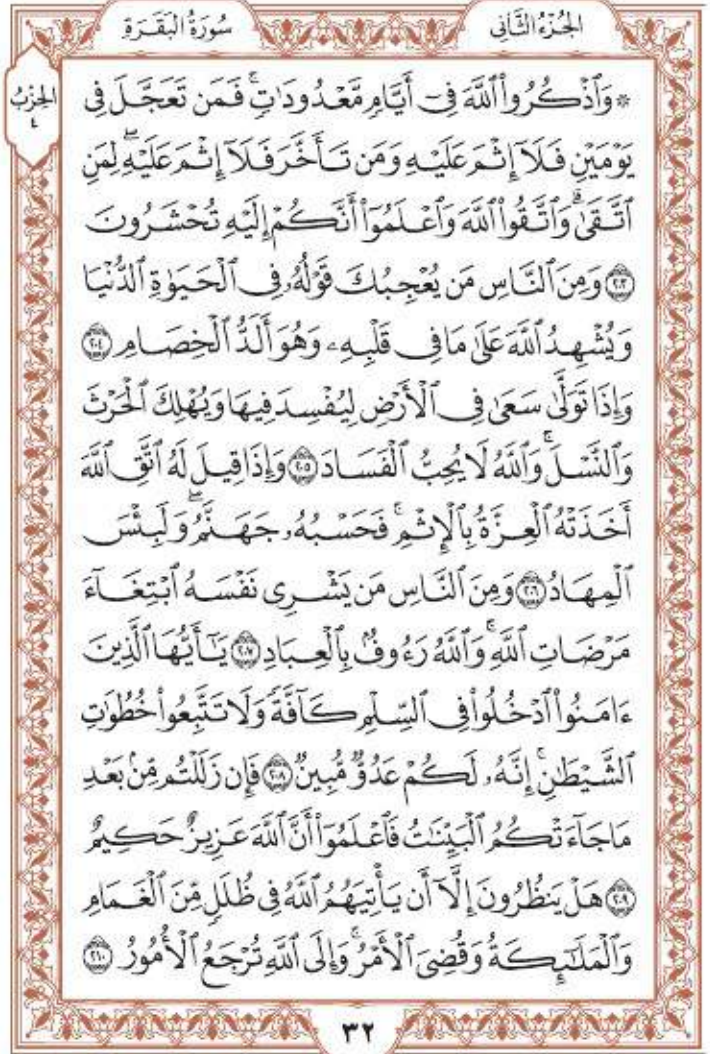 الجُزْءُ الثَّانِي
سُورَةُ البَقَرَةِ
الحِزْبُ
٤
* وَٱذْكُرُوا۟ ٱللَّهَ فِىٓ أَيَّامٍ مَّعْدُودَٰتٍ ۚ فَمَن تَعَجَّلَ فِى
يَوْمَيْنِ فَلَآ إِثْمَ عَلَيْهِ وَمَن تَأَخَّرَ فَلَآ إِثْمَ عَلَيْهِ ۖ لِمَنِ
ٱتَّقَىٰ ۗ وَٱتَّقُوا۟ ٱللَّهَ وَٱعْلَمُوٓا۟ أَنَّكُمْ إِلَيْهِ تُحْشَرُونَ
٢٠٣ وَمِنَ ٱلنَّاسِ مَن يُعْجِبُكَ قَوْلُهُۥ فِى ٱلْحَيَوٰةِ ٱلدُّنْيَا
وَيُشْهِدُ ٱللَّهَ عَلَىٰ مَا فِى قَلْبِهِۦ وَهُوَ أَلَدُّ ٱلْخِصَامِ ٢٠٤
وَإِذَا تَوَلَّىٰ سَعَىٰ فِى ٱلْأَرْضِ لِيُفْسِدَ فِيهَا وَيُهْلِكَ ٱلْحَرْثَ
وَٱلنَّسْلَ ۗ وَٱللَّهُ لَا يُحِبُّ ٱلْفَسَادَ ٢٠٥ وَإِذَا قِيلَ لَهُ ٱتَّقِ ٱللَّهَ
أَخَذَتْهُ ٱلْعِزَّةُ بِٱلْإِثْمِ ۚ فَحَسْبُهُۥ جَهَنَّمُ ۖ وَلَبِئْسَ
ٱلْمِهَادُ ٢٠٦ وَمِنَ ٱلنَّاسِ مَن يَشْرِى نَفْسَهُ ٱبْتِغَآءَ
مَرْضَاتِ ٱللَّهِ ۗ وَٱللَّهُ رَءُوفٌۢ بِٱلْعِبَادِ ٢٠٧ يَٰٓأَيُّهَا ٱلَّذِينَ
ءَامَنُوا۟ ٱدْخُلُوا۟ فِى ٱلسِّلْمِ كَآفَّةً وَلَا تَتَّبِعُوا۟ خُطُوَٰتِ
ٱلشَّيْطَٰنِ ۚ إِنَّهُۥ لَكُمْ عَدُوٌّ مُّبِينٌ ٢٠٨ فَإِن زَلَلْتُم مِّنۢ بَعْدِ
مَا جَآءَتْكُمُ ٱلْبَيِّنَٰتُ فَٱعْلَمُوٓا۟ أَنَّ ٱللَّهَ عَزِيزٌ حَكِيمٌ
٢٠٩ هَلْ يَنظُرُونَ إِلَّآ أَن يَأْتِيَهُمُ ٱللَّهُ فِى ظُلَلٍ مِّنَ ٱلْغَمَامِ
وَٱلْمَلَٰٓئِكَةُ وَقُضِىَ ٱلْأَمْرُ ۚ وَإِلَى ٱللَّهِ تُرْجَعُ ٱلْأُمُورُ ٢١٠
٣٢